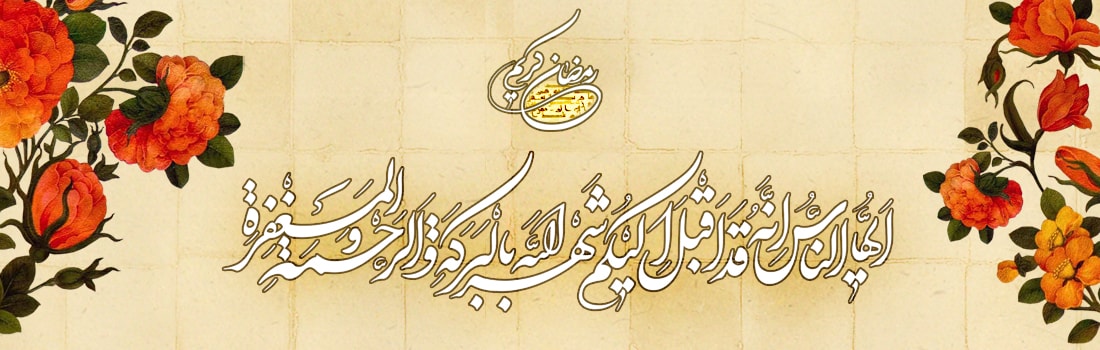 رمضان کریم
ایها الناس انه قد اقبل الیکم شهر الله بالبرکة و الرحمة و المغفرة